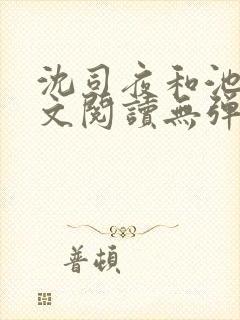 沈司夜和池
文閱讀無彈
普頓